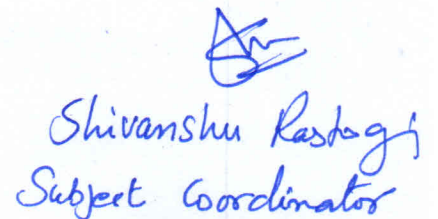 Shivanshu Rastogi
Subject Coordinator